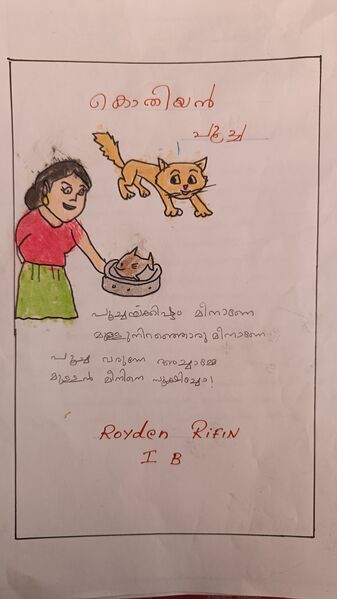 കൊതിയൻ
പൂച്ച
പൂച്ചയ്ക്കിഷ്ടം മീനാണേ
മുള്ളുനിറഞ്ഞൊരു മീനാണേ
പൂച്ച വരുന്നേ അച്ചാമ്മേ
മുള്ളൻ മീനിനെ സൂക്ഷിച്ചോ!
Royden Rifin
I B